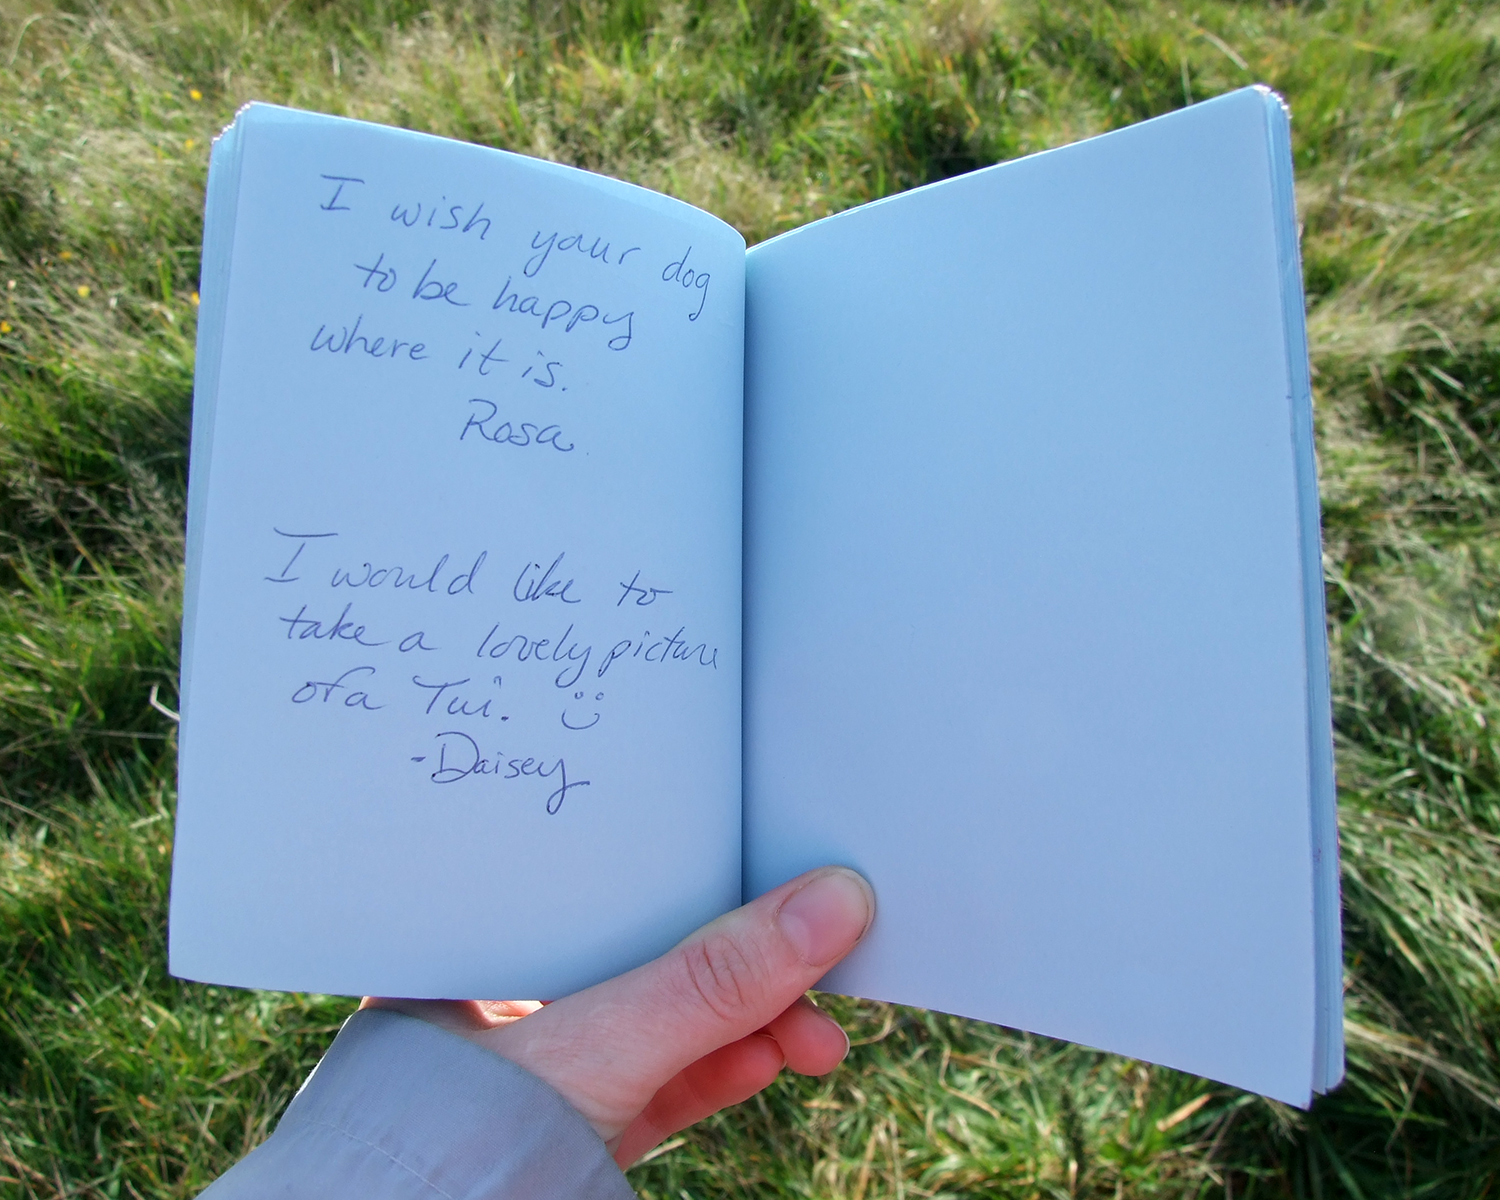 I wish your dog
to be happy
where it is.
Rosa
I would like to
take a lovely picture
of a Tui. :)
-Daisey